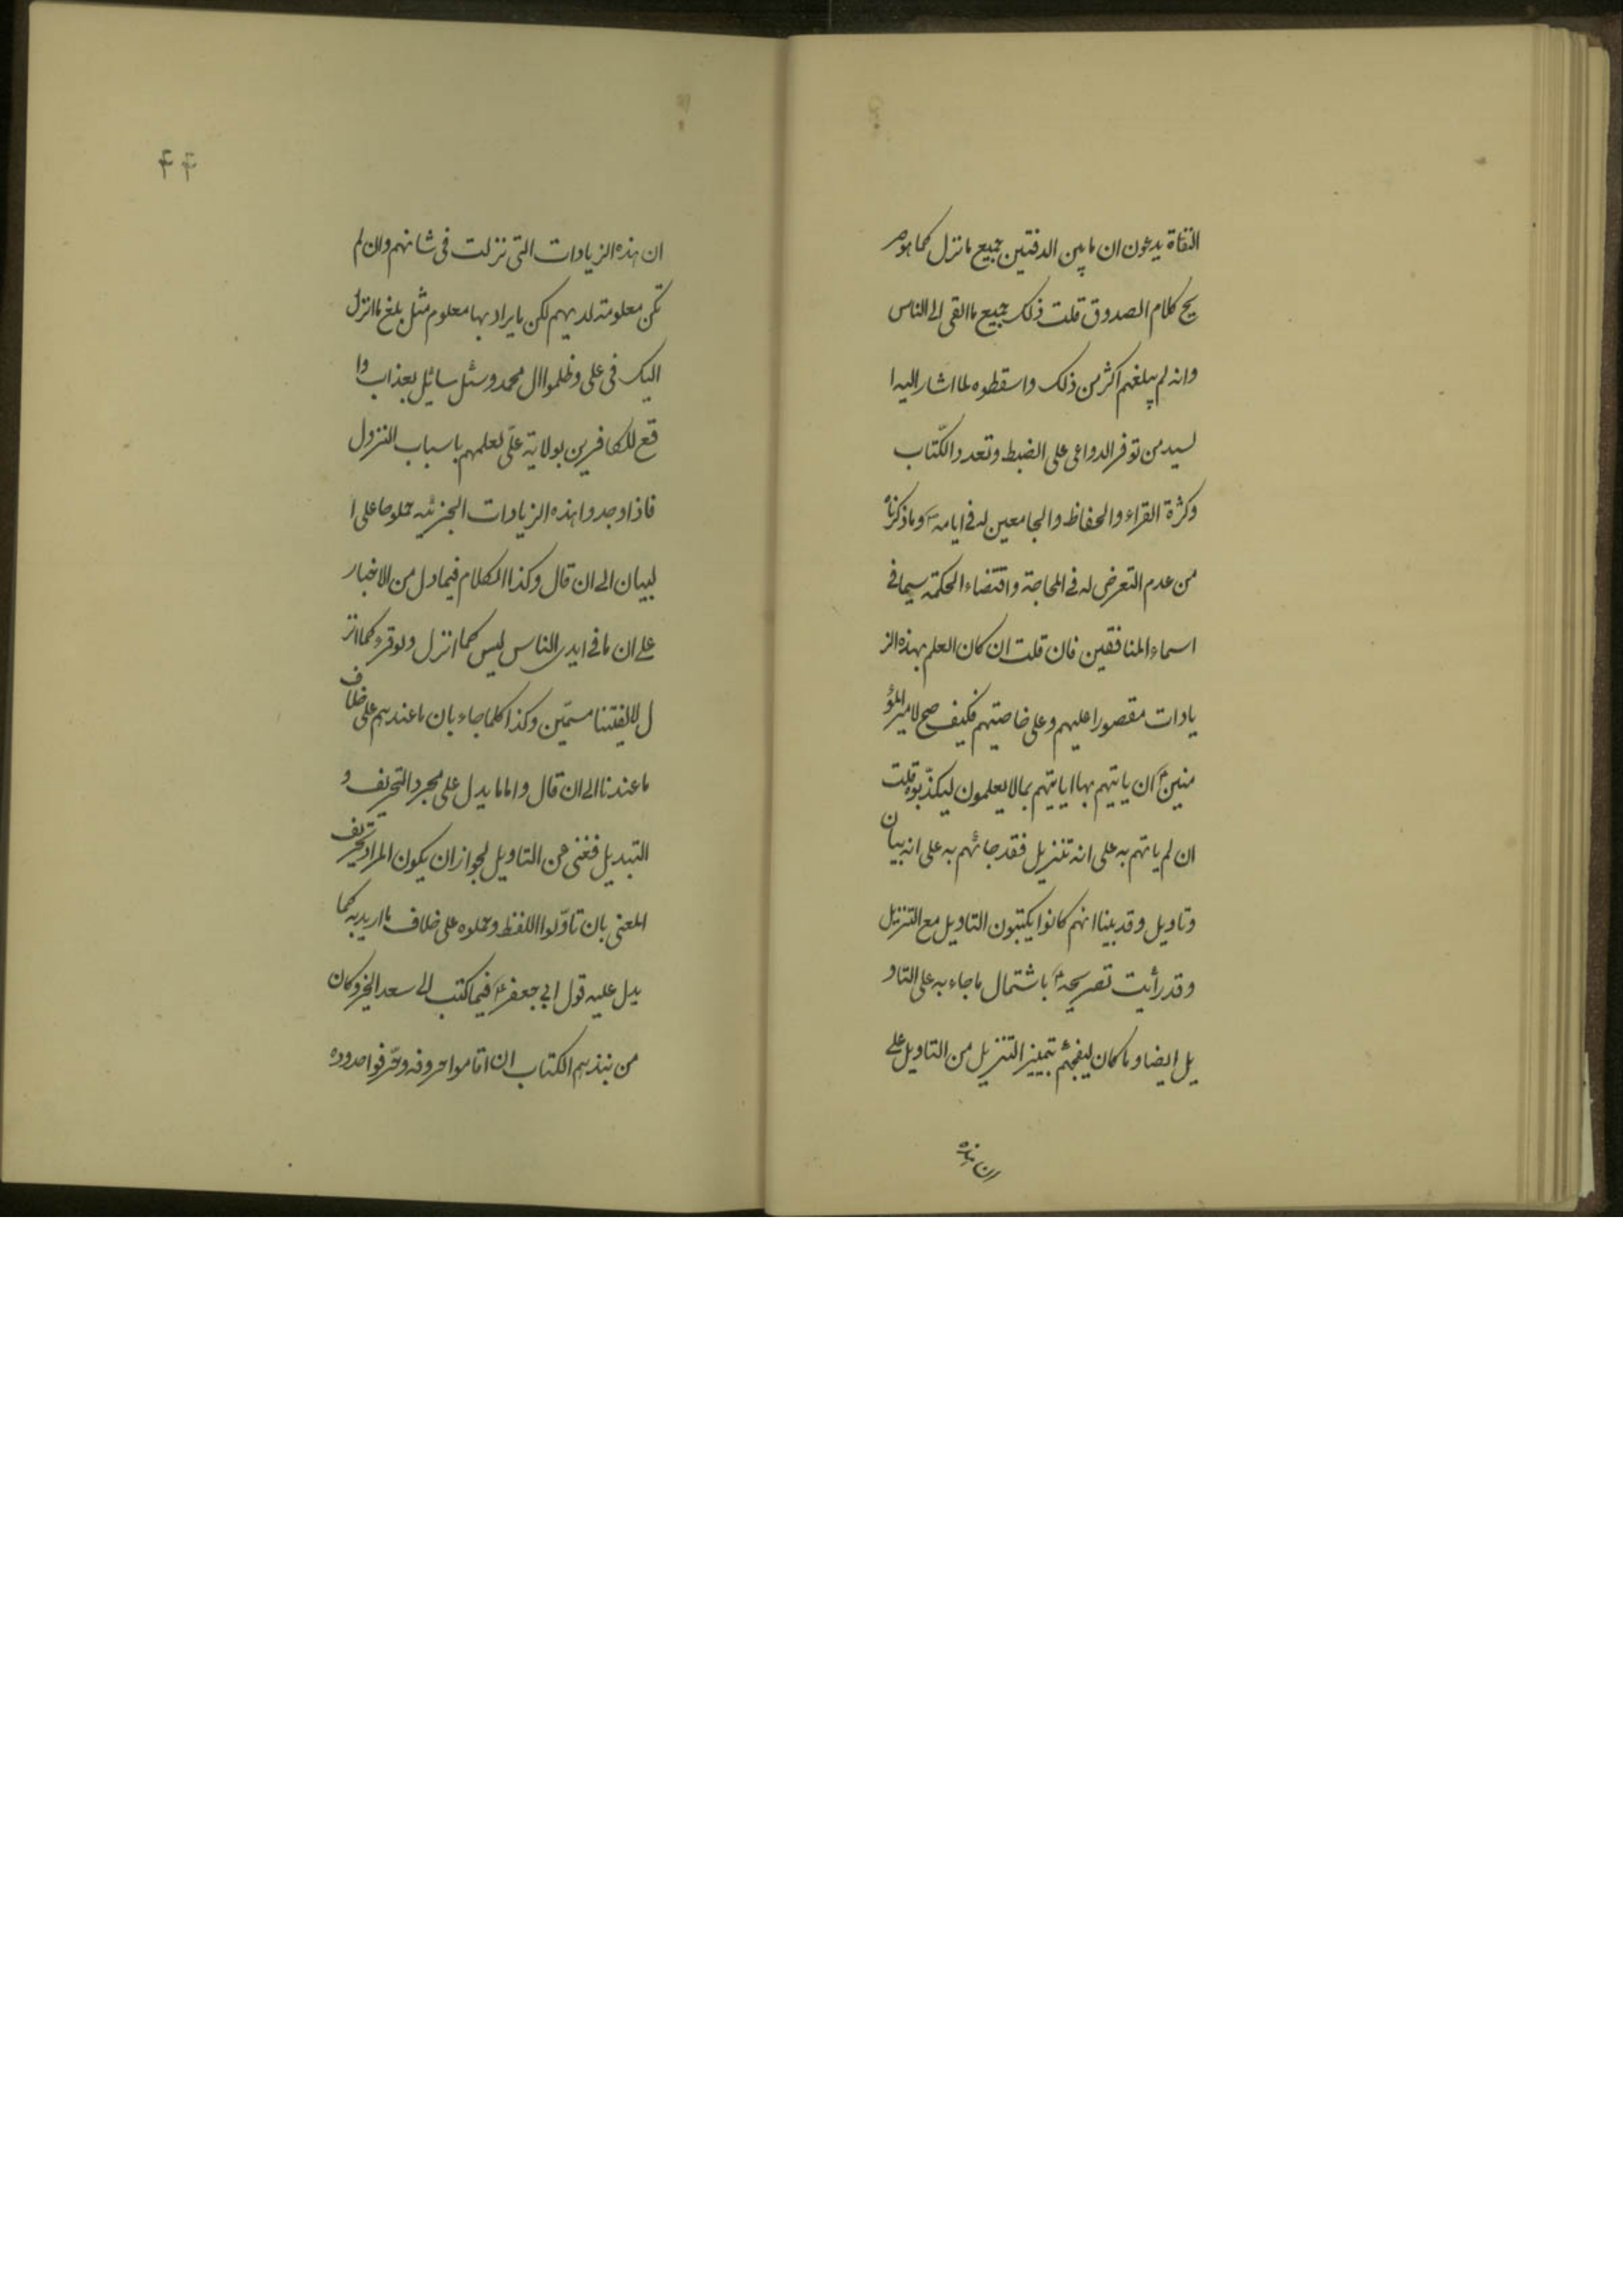 النفاة يدعون ان ما بين الدفتين جميع ما نزل كما هو صر
يح كلام الصدوق قلت ذلك جميع ما القى الى الناس
وانه لم يبلغهم اكثر من ذلك واسقطوه لما اشار اليه ا
لسيد من توفر الدواعى على الضبط وتعدد الكتّاب
وكثرة القراء والحفاظ والجامعين له فى ايامه ص وما ذكرناه
من عدم التعرض له فى المحاجة واقتضاء الحكمة سيما فى
اسماء المنافقين فان قلت ان كان العلم بهذه الز
يادات مقصورا عليهم وعلى خاصتهم فكيف صح لامير المؤ
منين ع ان ياتيهم بها اياتيهم بما لا يعلمون ليكذّبوه قلت
ان لم ياتهم به على انه تنزيل فقد جائهم به على انه بيان
وتاويل وقد بينا انهم كانوا يكتبون التاويل مع التنزيل
وقد رأيت تصريحه ع باشتمال ما جاء به على التاو
يل ايضا وما كان ليفجئهم بتمييز التنزيل من التاويل على
ان هذه
۴۴
ان هذه الزيادات التى نزلت فى شانهم وان لم
تكن معلومة لديهم لكن ما يراد بها معلوم مثل بلغ ما انزل
اليك فى على وظلموا ال محمد وسئل سائل بعذاب وا
قع للكافرين بولاية علىّ لعلمهم باسباب النزول
فاذا وجدوا هذه الزيادات الجزئيه حملوها على ا
لبيان الى ان قال وكذا الكلام فيما دل من الاخبار
على ان ما فى ايدى الناس ليس كما انزل ولو قرء كما انز
ل لالفتنا مسمّين وكذا كلما جاء بان ما عندهم على خلاف
ما عندنا الى ان قال واما ما يدل على مجرد التحريف و
التبديل فغنى عن التاويل لجواز ان يكون المراد تحريف
المعنى بان تاوّلوا اللفظ وحملوه على خلاف ما اريد به كما
يدل عليه قول ابى جعفر ع فيما كتب الى سعد الخير وكان
من نبذهم الكتاب ان اقاموا حروفه وحرّفوا حدوده